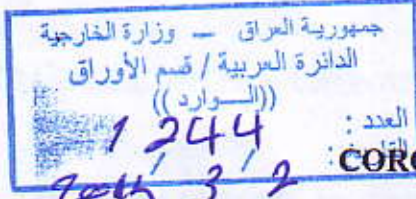 جمهورية العراق – وزارة الخارجية
الدائرة العربية / قسم الأوراق
((الـــوارد))
العدد : 1244
2 / 3 /
CORO